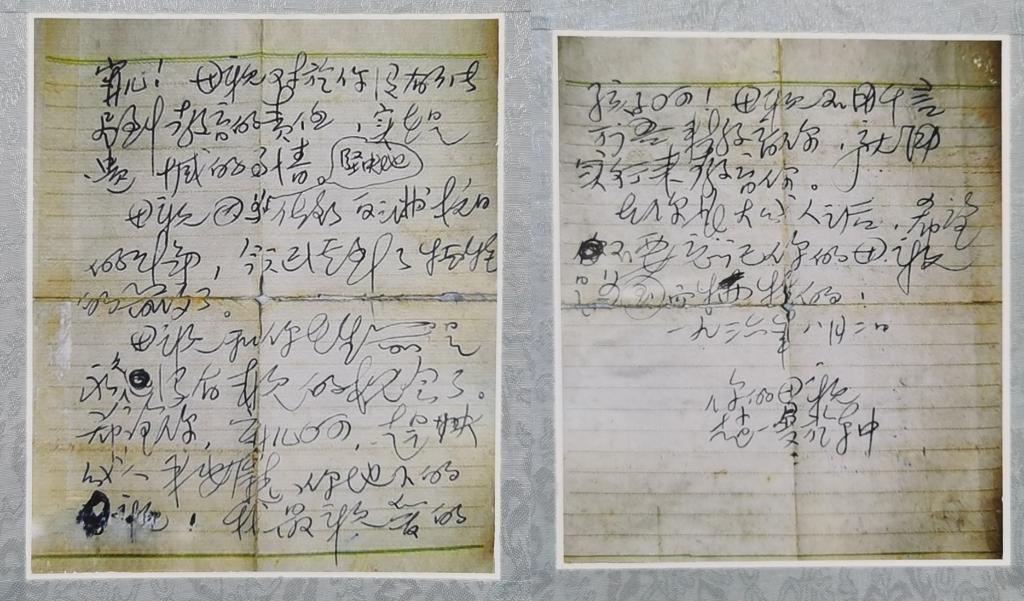 寧儿！母親对於你没有能尽
到教育的責任，实在是
遗憾的事情。坚决地
母親因为做了反满抗日
的斗争，今天已经到了牺牲
的前夕了。
母親和你在生前是
永久没有再见的机会了。
希望你，宁儿啊，赶快
成人来安慰你地下的
母親！我最親爱的
孩子啊！母親不用千言
万语来教育你，就用
实行来教育你。
在你长大成人之后，希望
不要忘记你的母親
是为国而牺牲的！
一九三六年八月二日
你的母親
赵一曼於车中